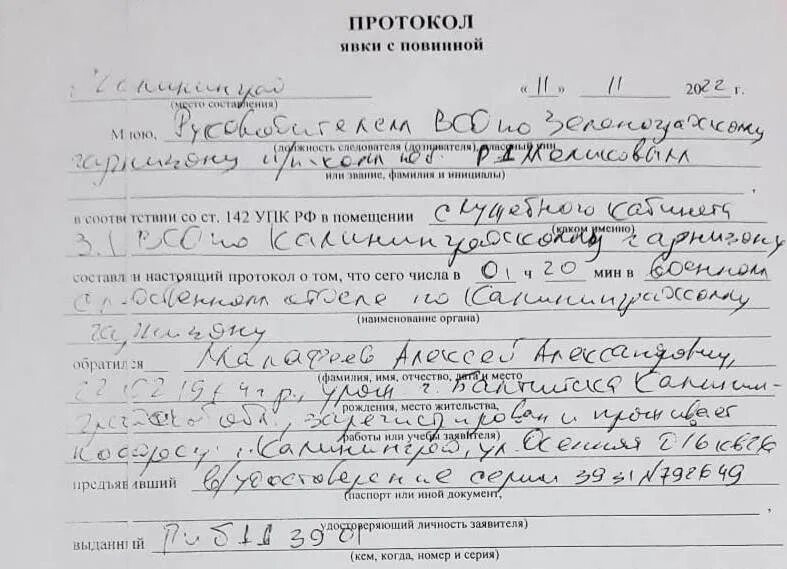 ПРОТОКОЛ
явки с повинной
г. Калининград «11» 11 2022 г.
(место составления)
Мною, Руководителем ВСО по Зеленоградскому
(должность следователя (дознавателя),
гарнизону п/п-ком юст. Р Меликовым
или звание, фамилия и инициалы)
в соответствии со ст. 142 УПК РФ в помещении служебного кабинета
(каком именно)
ВСО по Калининградскому гарнизону
составлен настоящий протокол о том, что сего числа в 01 ч 20 мин в военном
следственном отделе по Калининградскому
(наименование органа)
гарнизону
обратился Малафеев Алексей Александрович,
(фамилия, имя, отчество, дата и место
г.р., урож. г. Балтийска Калинин-
рождения, место жительства,
градской обл., зарегистрирован и проживает
работы или учебы заявителя)
по адресу: г. Калининград, ул. Осенняя
предъявивший в/удостоверение серии
(паспорт или иной документ,
удостоверяющий личность заявителя)
выданный
(кем, когда, номер и серия)